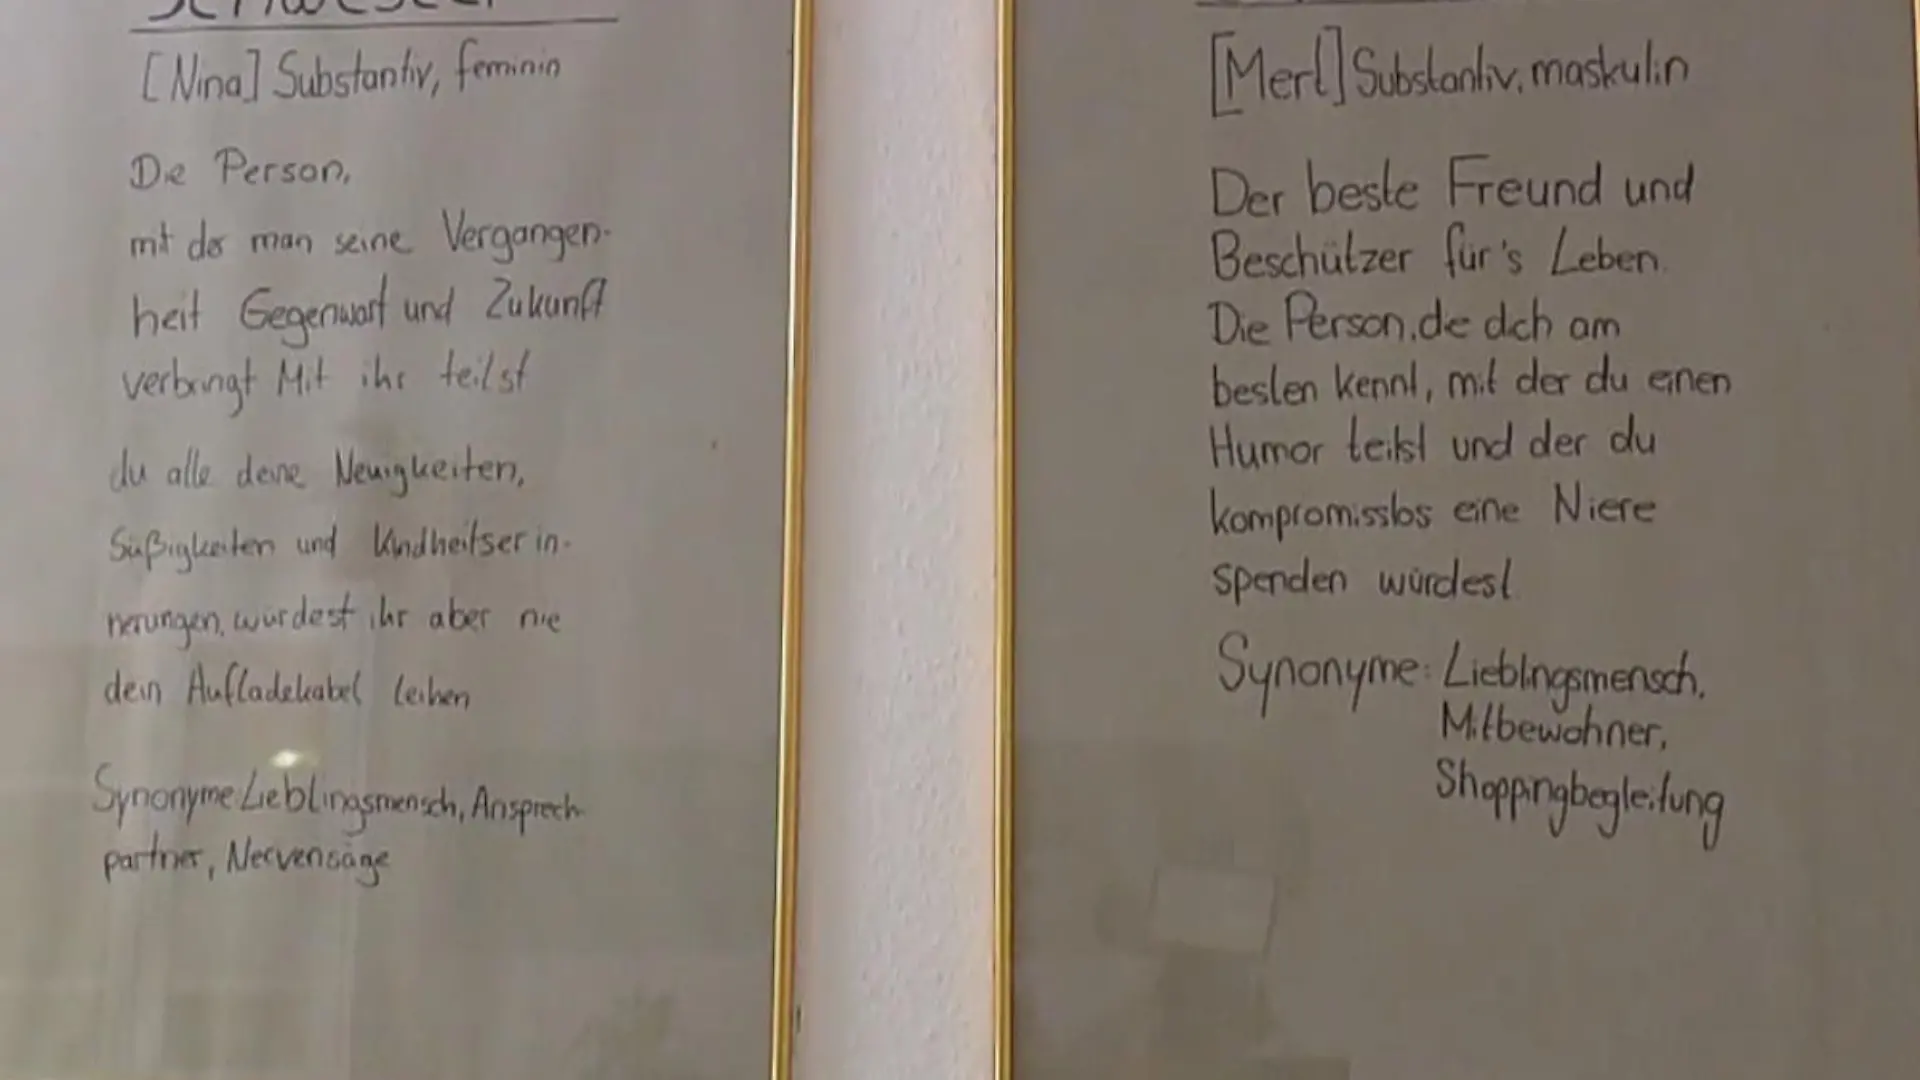 Schwester
[Nina] Substantiv, feminin
Die Person,
mit der man seine Vergangen-
heit Gegenwart und Zukunft
verbringt Mit ihr teilst
du alle deine Neuigkeiten,
Süßigkeiten und Kindheitserin-
nerungen, würdest ihr aber nie
dein Aufladekabel leihen
Synonyme Lieblingsmensch, Ansprech-
partner, Nervensäge
[Merl] Substantiv, maskulin
Der beste Freund und
Beschützer für's Leben.
Die Person, die dich am
besten kennt, mit der du einen
Humor teilst und der du
kompromisslos eine Niere
spenden würdest
Synonyme: Lieblingsmensch,
Mitbewohner,
Shoppingbegleitung